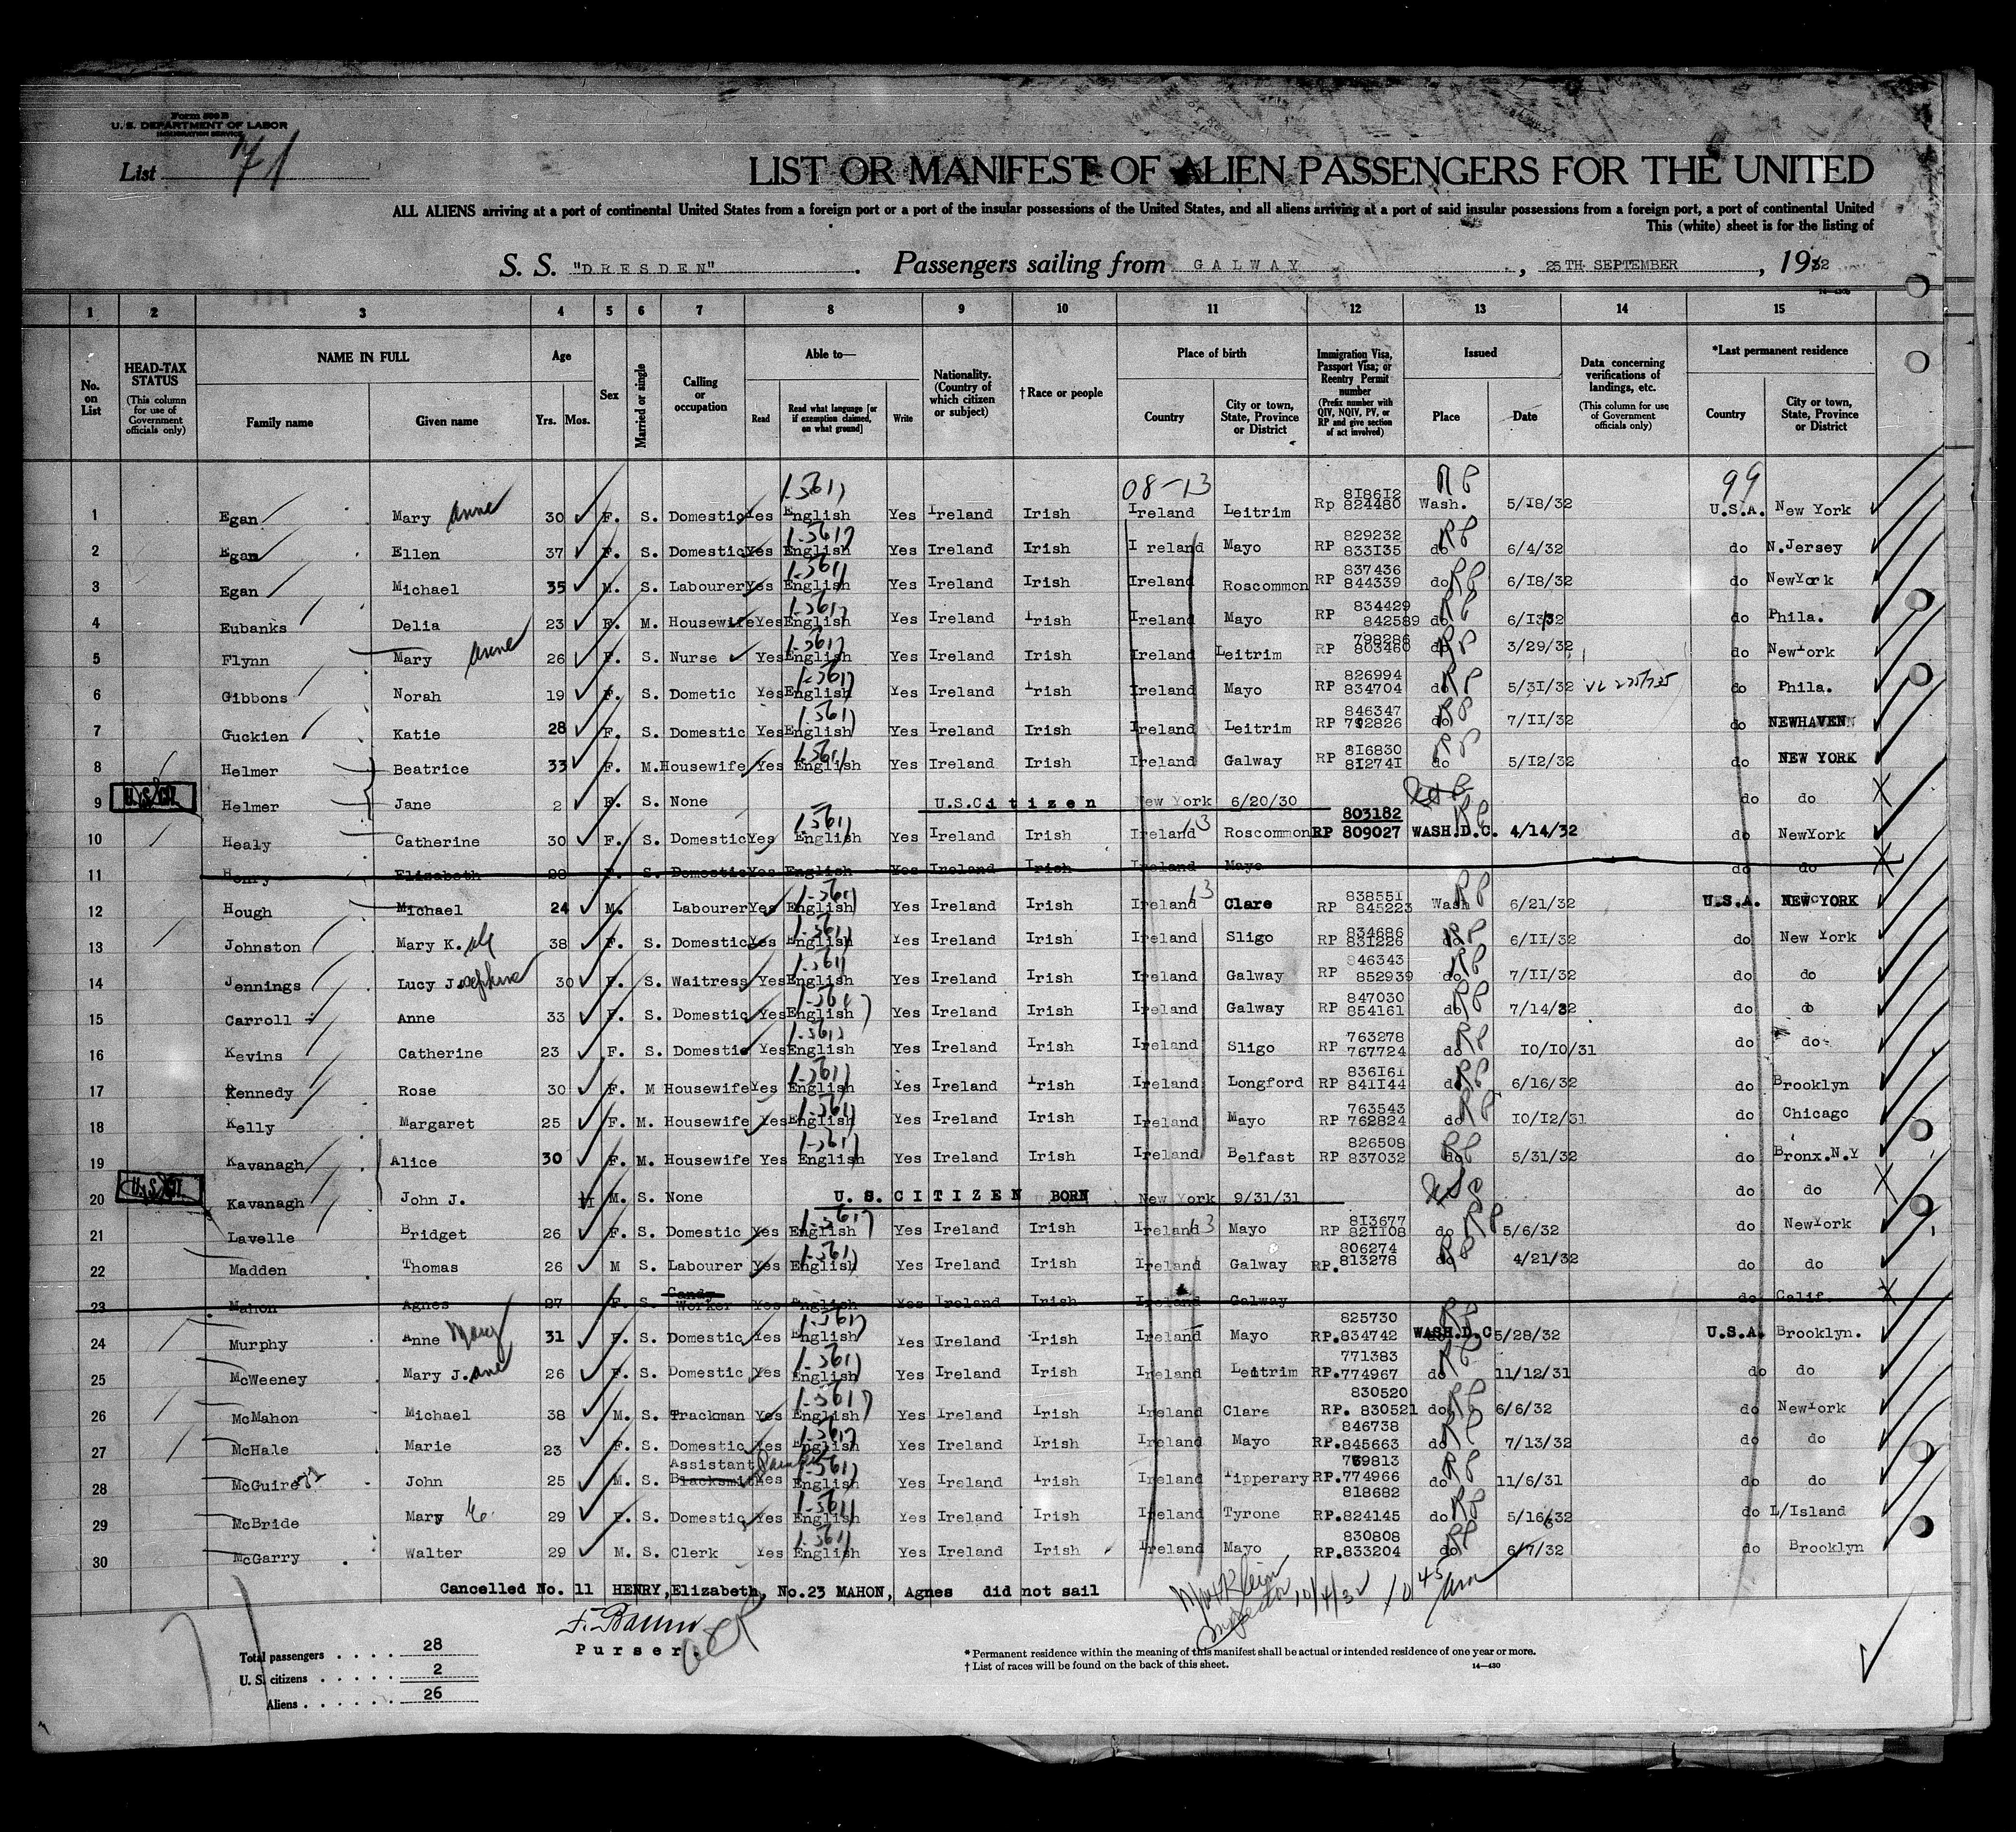 Form 500 B
U. S. DEPARTMENT OF LABOR
IMMIGRATION SERVICE
List 71
LIST OR MANIFEST OF ALIEN PASSENGERS FOR THE UNITED
ALL ALIENS arriving at a port of continental United States from a foreign port or a port of the insular possessions of the United States, and all aliens arriving at a port of said insular possessions from a foreign port, a port of continental United
This (white) sheet is for the listing of
S. S. "DRESDEN" . Passengers sailing from GALWAY , 25TH SEPTEMBER , 1932
1 2 3 4 5 6 7 8 9 10 11 12 13 14 15
No. on List
HEAD-TAX STATUS (This column for use of Government officials only)
NAME IN FULL Family name Given name
Age Yrs. Mos.
Sex
Married or single
Calling or occupation
Able to— Read Read what language [or if exemption claimed, on what ground] Write
Nationality. (Country of which citizen or subject)
† Race or people
Place of birth Country City or town, State, Province or District
Immigration Visa, Passport Visa, or Reentry Permit number (Prefix number with QIV, NQIV, PV, or RP and give section of act involved)
Issued Place Date
Data concerning verifications of landings, etc. (This column for use of Government officials only)
*Last permanent residence Country City or town, State, Province or District
08-13 RP 99
1 Egan Mary Anne 30 F. S. Domestic Yes English Yes Ireland Irish Ireland Leitrim Rp 818612 824480 Wash. 5/18/32 U.S.A. New York
2 Egan Ellen 37 F. S. Domestic Yes English Yes Ireland Irish Ireland Mayo RP 829232 833135 do RP 6/4/32 do N.Jersey
3 Egan Michael 35 M. S. Labourer Yes English Yes Ireland Irish Ireland Roscommon RP 837436 844339 do RP 6/18/32 do NewYork
4 Eubanks Delia 23 F. M. Housewife Yes English Yes Ireland Irish Ireland Mayo RP 834429 842589 do RP 6/13/32 do Phila.
5 Flynn Mary Anne 26 F. S. Nurse Yes English Yes Ireland Irish Ireland Leitrim RP 798286 803460 do RP 3/29/32 do NewYork
6 Gibbons Norah 19 F. S. Dometic Yes English Yes Ireland Irish Ireland Mayo RP 826994 834704 do RP 5/31/32 do Phila.
7 Guckien Katie 28 F. S. Domestic Yes English Yes Ireland Irish Ireland Leitrim RP 846347 792826 do RP 7/11/32 do NEWHAVEN
8 Helmer Beatrice 33 F. M. Housewife Yes English Yes Ireland Irish Ireland Galway RP 816830 812741 do RP 5/12/32 do NEW YORK
9 U.S. CIT. Helmer Jane 2 F. S. None U.S.Citizen New York 6/20/30 do do
10 Healy Catherine 30 F. S. Domestic Yes English Yes Ireland Irish Ireland 13 Roscommon RP 803182 809027 WASH.D.C. RP 4/14/32 do NewYork
11 Henry Elizabeth 28 F. S. Domestic Yes English Yes Ireland Irish Ireland Mayo do do
12 Hough Michael 24 M. Labourer Yes English Yes Ireland Irish Ireland 13 Clare RP 838551 845223 Wash RP 6/21/32 U.S.A. NEW YORK
13 Johnston Mary K. 38 F. S. Domestic Yes English Yes Ireland Irish Ireland Sligo RP 834686 831226 do RP 6/11/32 do New York
14 Jennings Lucy Josephine 30 F. S. Waitress Yes English Yes Ireland Irish Ireland Galway RP 846343 852939 do RP 7/11/32 do do
15 Carroll Anne 33 F. S. Domestic Yes English Yes Ireland Irish Ireland Galway RP 847030 854161 do RP 7/14/32 do do
16 Kevins Catherine 23 F. S. Domestic Yes English Yes Ireland Irish Ireland Sligo RP 763278 767724 do RP 10/10/31 do do
17 Kennedy Rose 30 F. M Housewife Yes English Yes Ireland Irish Ireland Longford RP 836161 841144 do RP 6/16/32 do Brooklyn
18 Kelly Margaret 25 F. M. Housewife Yes English Yes Ireland Irish Ireland Mayo RP 763543 762824 do RP 10/12/31 do Chicago
19 Kavanagh Alice 30 F. M. Housewife Yes English Yes Ireland Irish Ireland Belfast RP 826508 837032 do RP 5/31/32 do Bronx.N.Y
20 U.S. CIT. Kavanagh John J. 11 M. S. None U.S.CITIZEN BORN New York 9/31/31 do do
21 Lavelle Bridget 26 F. S. Domestic Yes English Yes Ireland Irish Ireland 13 Mayo RP 813677 821108 do RP 5/6/32 do NewYork
22 Madden Thomas 26 M S. Labourer Yes English Yes Ireland Irish Ireland Galway RP. 806274 813278 do RP 4/21/32 do do
23 Mahon Agnes 27 F. S. Candy Worker Yes English Yes Ireland Irish Ireland Galway do Calif.
24 Murphy Anne Mary 31 F. S. Domestic Yes English Yes Ireland Irish Ireland Mayo RP. 825730 834742 WASH.D.C RP 5/28/32 U.S.A. Brooklyn.
25 McWeeney Mary Jane 26 F. S. Domestic Yes English Yes Ireland Irish Ireland Leitrim RP. 771383 774967 do RP 11/12/31 do do
26 McMahon Michael 38 M. S. Trackman Yes English Yes Ireland Irish Ireland Clare RP. 830520 830521 do RP 6/6/32 do NewYork
27 McHale Marie 23 F. S. Domestic Yes English Yes Ireland Irish Ireland Mayo RP. 846738 845663 do RP 7/13/32 do do
28 McGuire John 25 M. S. Assistant Blacksmith Yes English Yes Ireland Irish Ireland Tipperary RP. 769813 774966 do RP 11/6/31 do do
29 McBride Mary 29 F. S. Domestic Yes English Yes Ireland Irish Ireland Tyrone RP. 818682 824145 do RP 5/16/32 do L/Island
30 McGarry Walter 29 M. S. Clerk Yes English Yes Ireland Irish Ireland Mayo RP. 830808 833204 do RP 6/7/32 do Brooklyn
Cancelled No. 11 HENRY,Elizabeth, No.23 MAHON, Agnes did not sail
Inspector 10/4/32 10 45 am
F. Baum
Purser.
Total passengers . . . . 28
U. S. citizens . . . . . 2
Aliens . . . . . . 26
* Permanent residence within the meaning of this manifest shall be actual or intended residence of one year or more.
† List of races will be found on the back of this sheet. 14—430